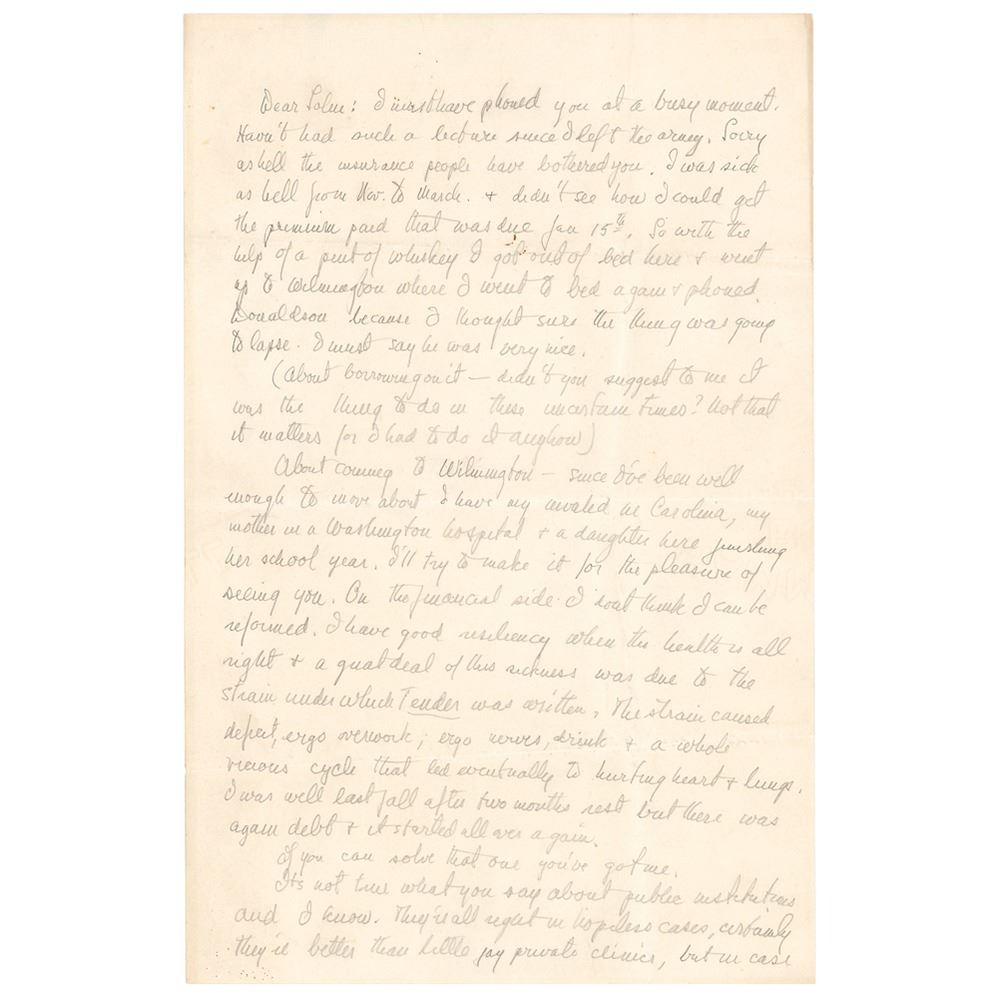 Dear John: I must have phoned you at a busy moment.
Havn't had such a lecture since I left the army. Sorry
as hell the insurance people have bothered you. I was sick
as hell from Nov. to March. + didn't see how I could get
the premium paid that was due Jan 15th. So with the
help of a pint of whiskey I got out of bed here + went
up to Wilmington where I went to bed again + phoned
Donaldson because I thought sure the thing was going
to lapse. I must say he was very nice.
(About borrowing on it — didn't you suggest to me it
was the thing to do in these uncertain times? Not that
it matters for I had to do it anyhow)
About coming to Wilmington — since I've been well
enough to move about I have my invalid in Carolina, my
mother in a Washington hospital + a daughter here finishing
her school year. I'll try to make it for the pleasure of
seeing you. On the financial side I dont think I can be
reformed. I have good resiliency when the health is all
right + a great deal of this sickness was due to the
strain under which Tender was written. The strain caused
debt, ergo overwork; ergo nerves, drink + a whole
vicious cycle that led eventually to hurting heart + lungs.
I was well last fall after two months rest but there was
again debt + it started all over again.
If you can solve that one you've got me.
Its not true what you say about public institutions
and I know. They're all right in hopeless cases, certainly
they're better than little jay private clinics, but in case